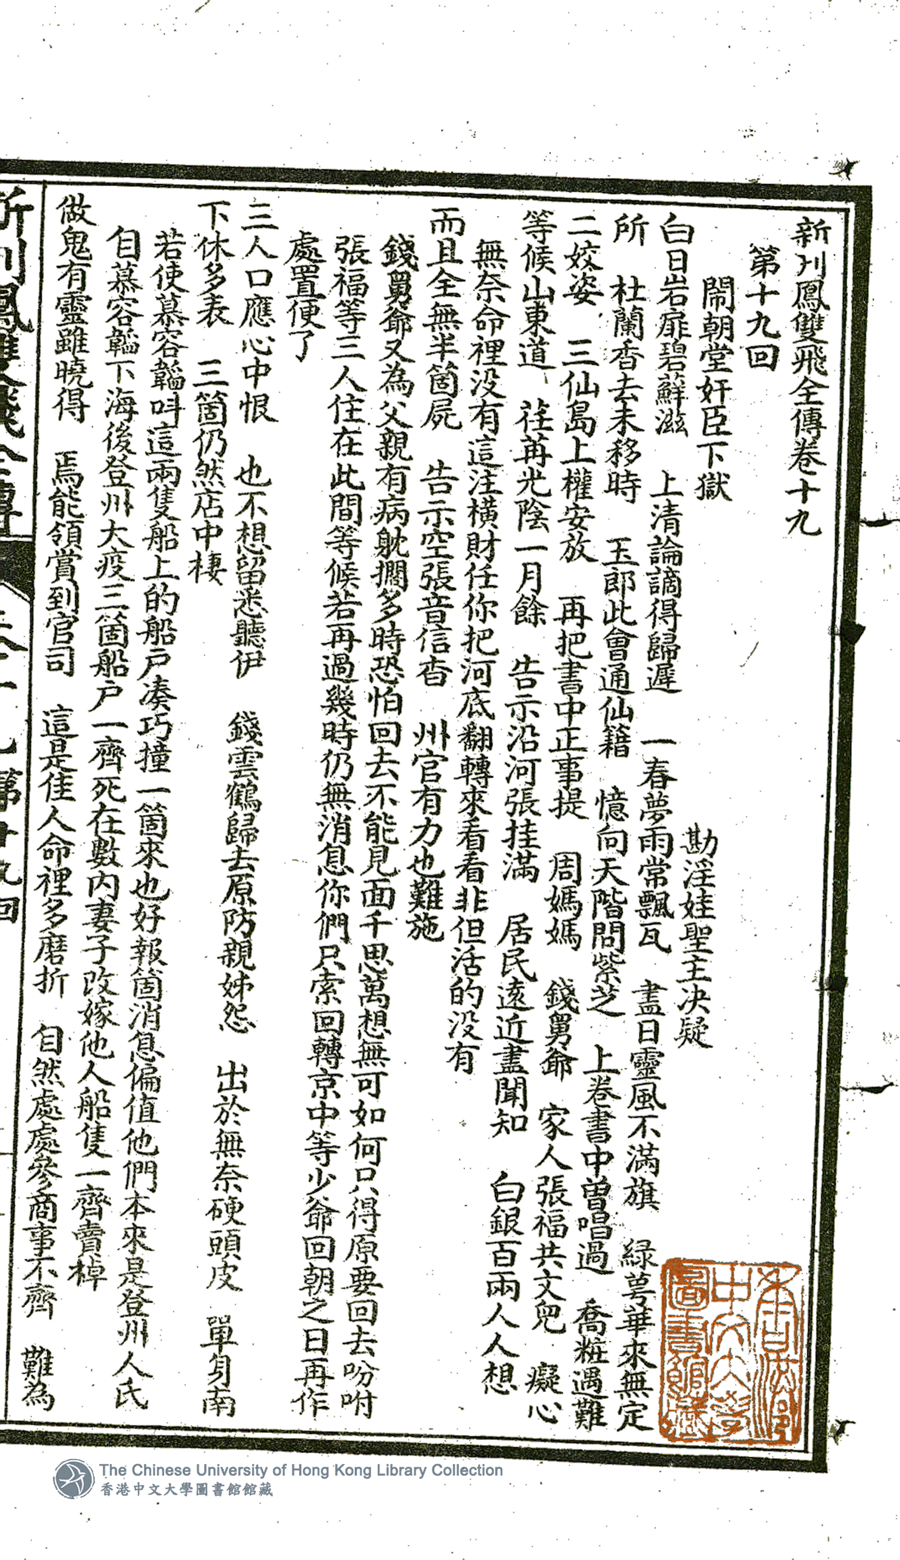 新刊鳳雙飛全傳卷十九
第十九回
鬧朝堂奸臣下獄　勘淫娃聖主决疑
白日岩扉碧蘚滋　上清論謫得歸遲　一春夢雨常飄瓦　盡日靈風不滿旗　綠萼華來無定
所　杜蘭香去未移時　玉郎此會通仙籍　憶向天階問紫芝　上卷書中曾唱過　喬粧遇難
二姣姿　三仙島上權安放　再把書中正事提　周媽媽　錢舅爺　家人張福共文兒　癡心
等候山東道　荏苒光陰一月餘　告示沿河張挂滿　居民遠近盡聞知　白銀百兩人人想
無奈命裡没有這注橫財任你把河底翻轉來看看非但活的没有
而且全無半箇屍　告示空張音信杳　州官有力也難施
錢舅爺又為父親有病躭擱多時恐怕回去不能見面千思萬想無可如何只得原要回去吩咐
張福等三人住在此間等候若再過幾時仍無消息你們只索回轉京中等少爺回朝之日再作
處置便了
三人口應心中恨　也不想留悉聽伊　錢雲鶴歸去原防親姊怨　出於無奈硬頭皮　單身南
下休多表　三箇仍然店中棲
若使慕容韞叫這兩隻船上的船戶凑巧撞一箇來也好報箇消息偏值他們本來是登州人氏
自慕容韞下海後登州大疫三箇船户一齊死在數内妻子改嫁他人船隻一齊賣棹
做鬼有靈雖曉得　焉能領賞到官司　這是佳人命裡多磨折　自然處處參商事不齊　難為
新刊鳳雙飛全傳　卷十九　第十九回
香港中文大學圖書館藏
The Chinese University of Hong Kong Library Collection
香港中文大學圖書館館藏